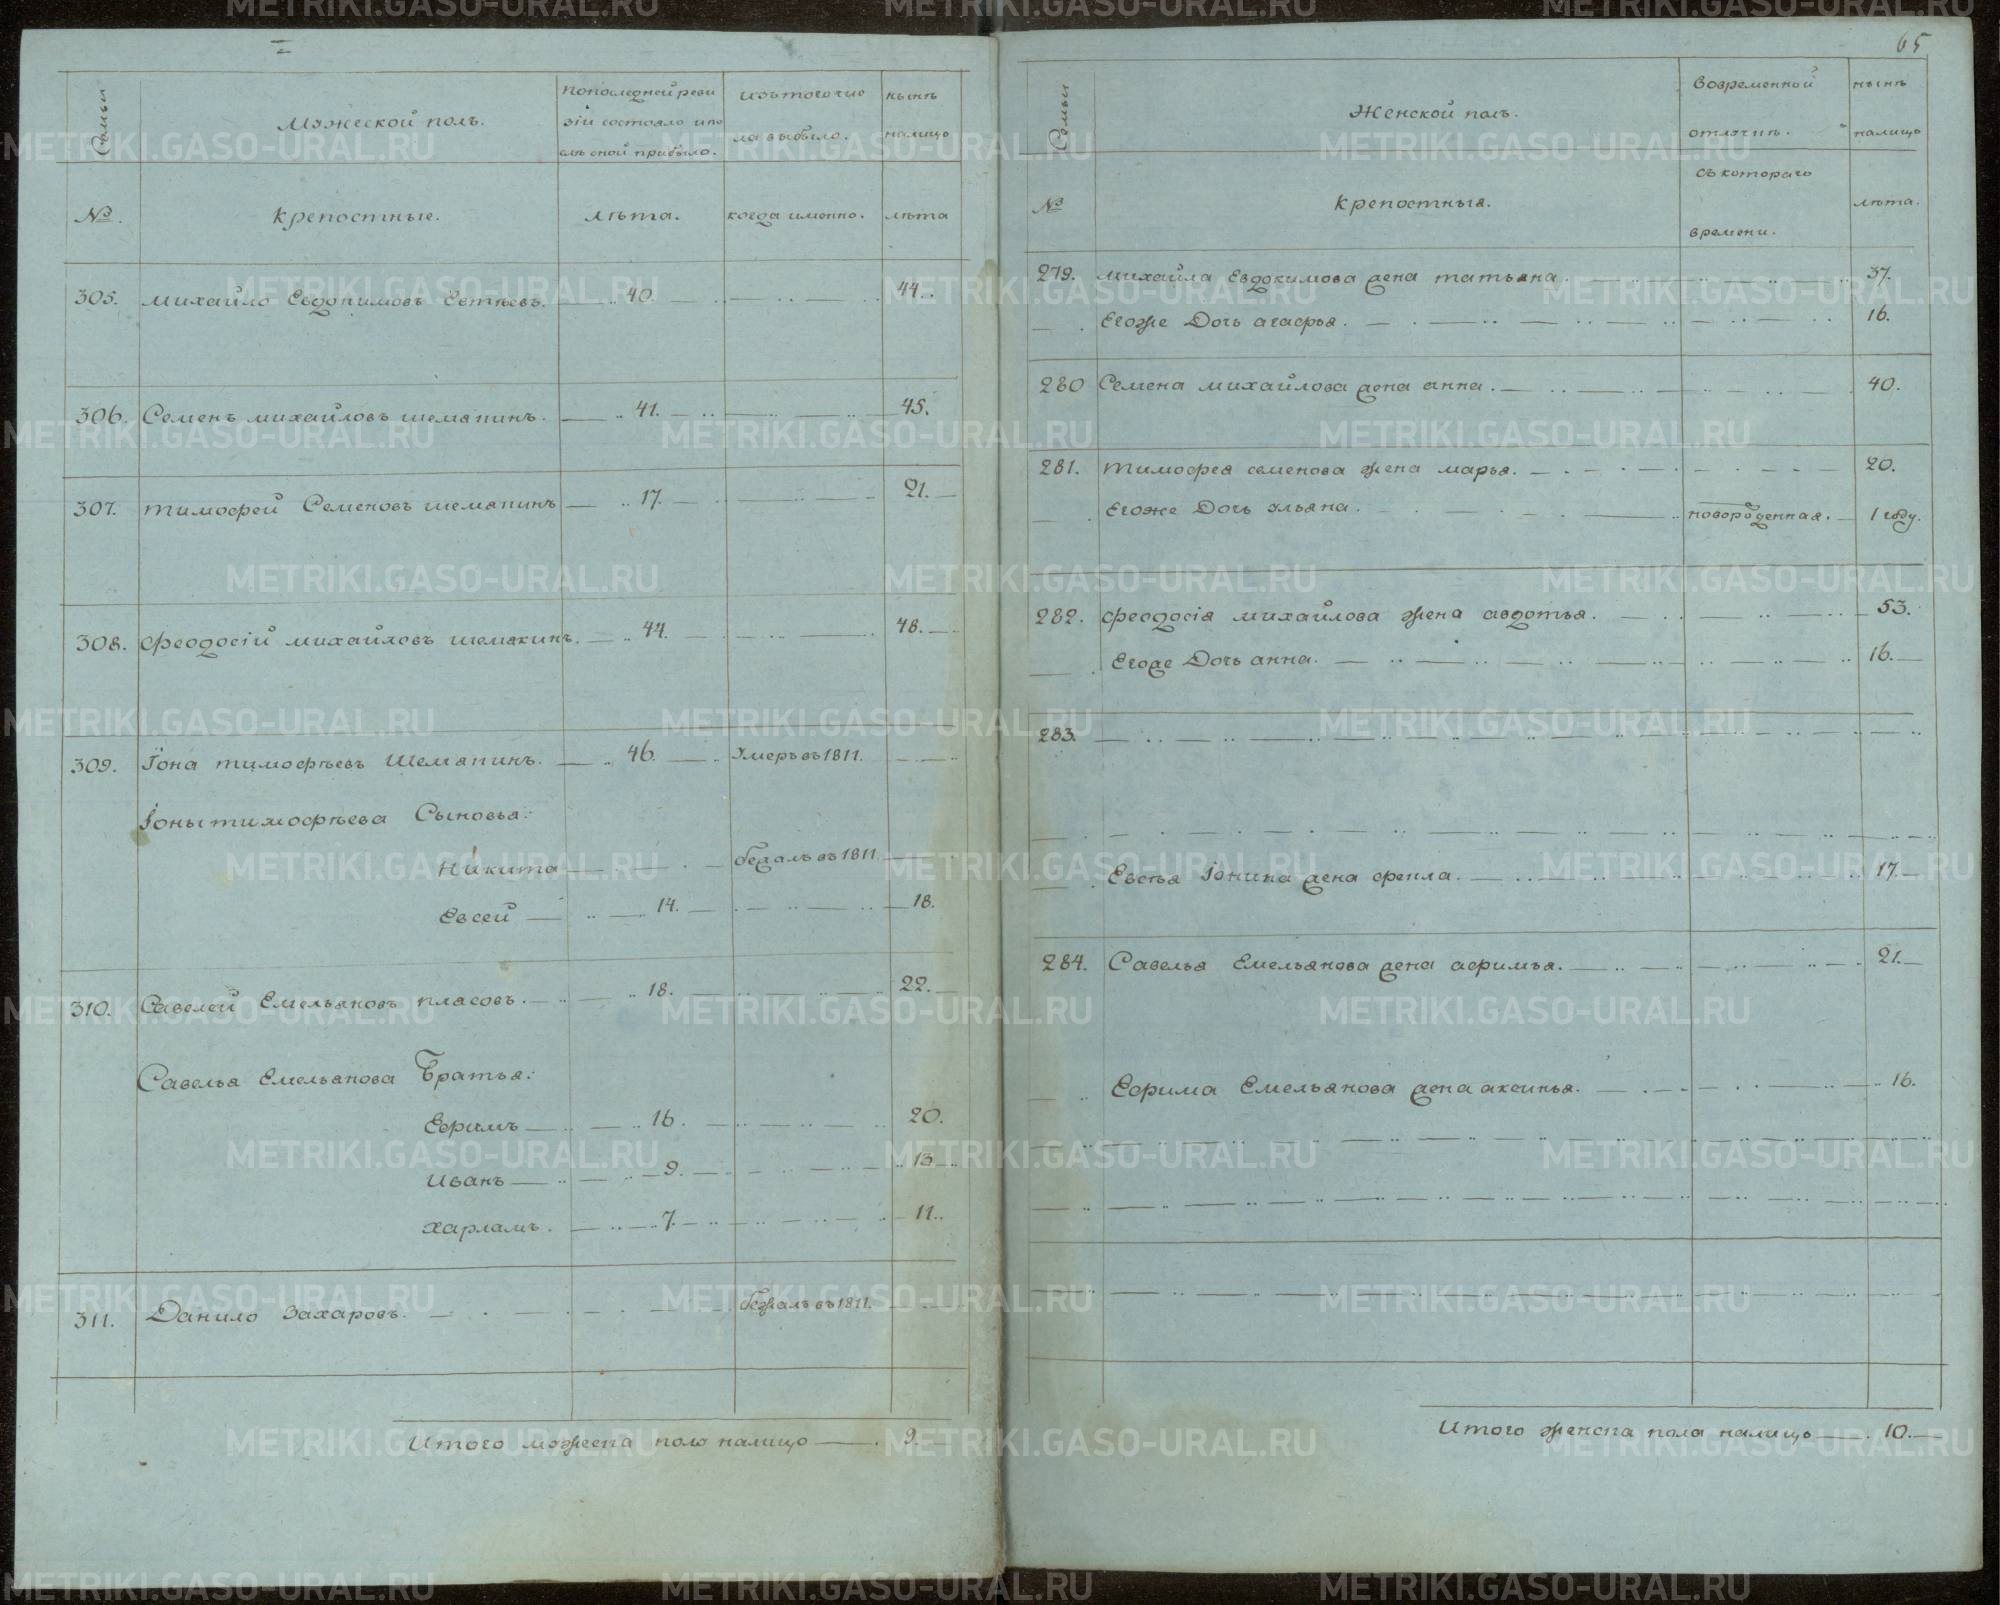 65
Семьи
Мужеской полъ.
Попоследней реви
зіи состояло ипо
слѣ оной прибыло.
изътого чис
ла выбыло.
нынѣ
налицо
№.
крепостные.
лѣта.
когда именно.
лѣта
305. михайло Евдокимовъ 40. 44.
306. Семенъ михайловъ шемакинъ. 41. 45.
307. тимофей Семеновъ шемакинъ 17. 21.
308. феодосій михайловъ шемакинъ. 44. 48.
309. Іона тимофѣевъ Шемакинъ. 46. Умеръ въ 1811.
Іоны тимофѣева Сыновья:
Никита бежалъ въ 1811.
Евсей 14. 18.
310. Савелей Емельяновъ власовъ. 18. 22.
Савелья Емельянова Братья:
Ефимъ 16. 20.
Иванъ 9. 13
харламъ. 7. 11.
311. Данило Захаровъ. бежалъ въ 1811.
Итого мужеска полу налицо 9.
Семьи
Женской полъ.
Вовременной
отлучкѣ.
нынѣ
налицо
№
крепостныя.
съ котораго
времени.
лѣта.
279. михайла Евдокимова жена татьяна 37.
Егоже Дочь агафья. 16.
280 Семена михайлова жена анна. 40.
281. тимофея семенова жена марья. 20.
Егоже Дочь ульяна. новорожденная. 1 году.
282. феодосія михайлова жена авдотья. 53.
Егоже Дочь анна. 16.
283.
Евсѣя Іонина жена фекла. 17.
284. Савелья Емельянова жена афимья. 21.
Ефима Емельянова жена аксинья. 16.
Итого женска пола налицо 10.
METRIKI.GASO-URAL.RU